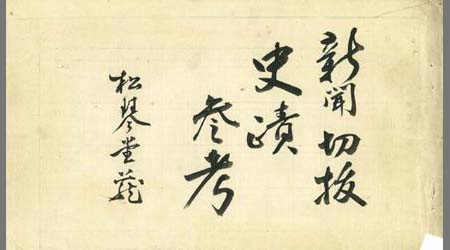 新聞切抜
史蹟
参考
松琴堂蔵